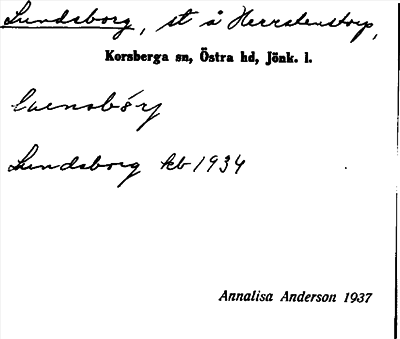 Lundsborg, st å Herrstenstorp,
Korsberga sn, Östra hd, Jönk. l.
Lundsborg kb 1934
Annalisa Anderson 1937